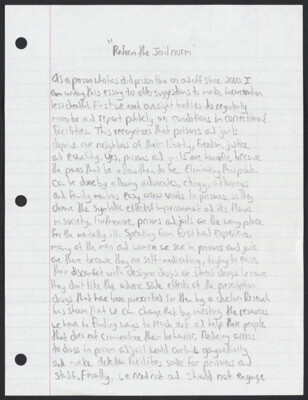 "Reform the Jail norm"
As a person who has did prison time on and off since 2000 I
am writing this essay to offer suggestions to make incarceration
less dreadful. First we need oversight bodies to regularly
monitor and report publicly on conditions in correctional
facilities. This recognizes that prisons and jails
deprive our neighbors of their liberty, freedom, justice
and equality. Yes, prisons and jails are horrific because
the powers that be allow them to be. Eliminating this problem
can be done by allowing advocates, clergy, attorneys
and family members easy access to prisons, so they
the symbolic effected imprisonment and its place
in society. Furthermore, prisons and jails are the wrong place
for the mentally ill. Speaking from first hand experience
many of the men and women we see in prisons and jails
are there because they are self-medicating, trying to ease
their discomfort with designer drugs or street drugs because
they don't like the adverse side effects of the prescription
drugs that have been prescribed for them by a doctor. Research
has shown that we can change that by investing the resources
we have to finding ways to reach out and help these people
that does not criminalize their behavior. Reducing access
to drugs in prison and jail would curtail gang activity
and make detention facilities safer for prisoners and
staff. Finally, we need not and should not engage